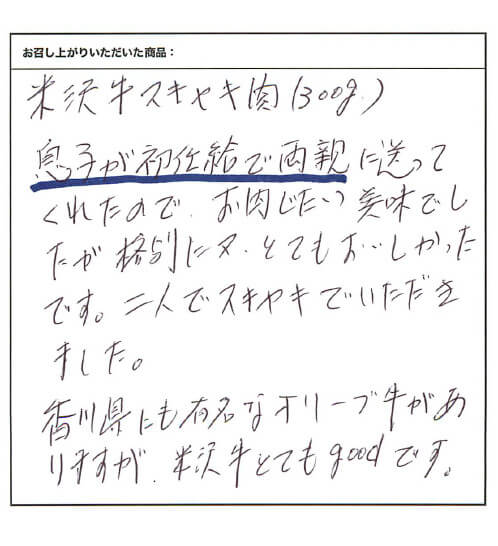 お召し上がりいただいた商品：
米沢牛スキヤキ肉(300g.)
息子が初任給で両親に送って
くれたので、お肉じたい美味でし
たが格別に又、とてもおいしかった
です。二人でスキヤキでいただき
ました。
香川県にも有名なオリーブ牛があ
りますが、米沢牛とてもgoodです。